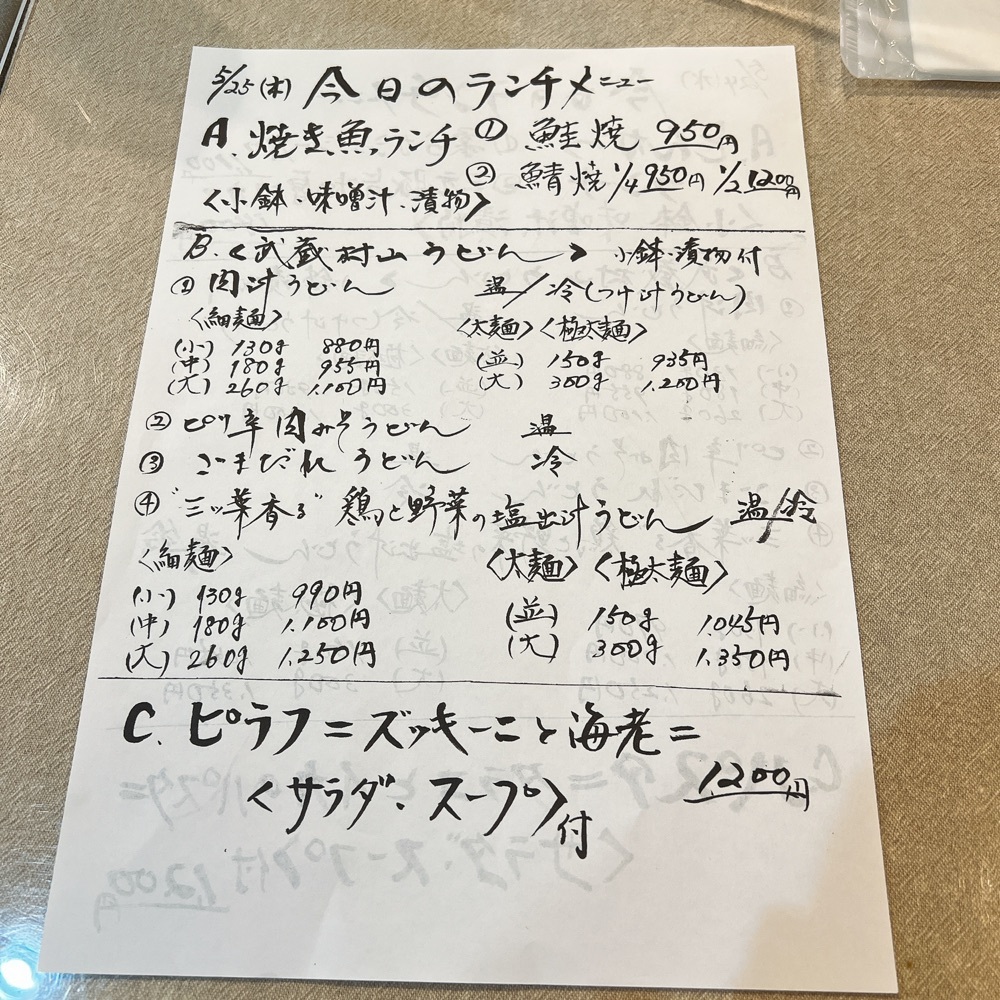 5/25(木) 今日のランチメニュー
A. 焼き魚ランチ ① 鮭焼 950円
② 鯖焼 1/4 950円 1/2 1200円
〈小鉢・味噌汁・漬物〉
B.〈武蔵村山うどん〉 小鉢・漬物付
① 肉汁うどん 温/冷(つけ汁うどん)
〈細麺〉 〈太麺〉〈極太麺〉
(小) 130g 880円 (並) 150g 935円
(中) 180g 955円 (大) 300g 1.200円
(大) 260g 1.100円
② ピリ辛肉みそうどん 温
③ ごまだれうどん 冷
④ "三ッ葉香る" 鶏と野菜の塩出汁うどん 温/冷
〈細麺〉 〈太麺〉〈極太麺〉
(小) 130g 990円 (並) 150g 1.045円
(中) 180g 1.100円 (大) 300g 1.350円
(大) 260g 1.250円
C. ピラフ=ズッキーニと海老=
〈サラダ・スープ〉付 1.200円